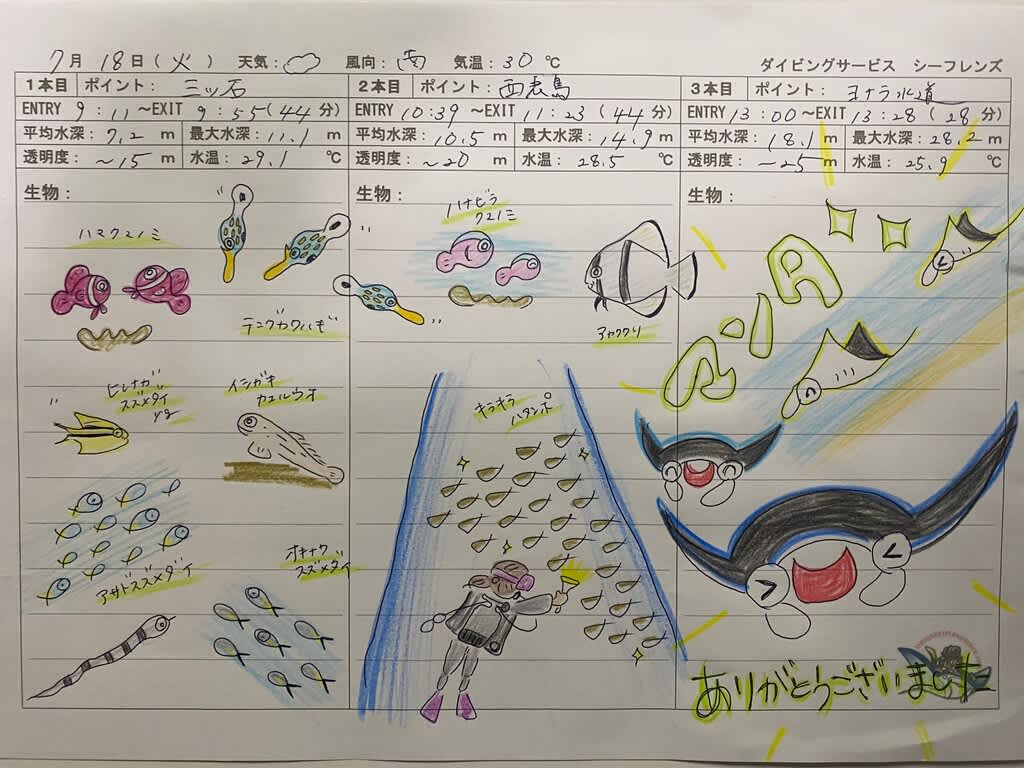 7月 18日(火) 天気: 風向:南 気温:30℃
ダイビングサービス シーフレンズ
1本目 ポイント: 三ッ石
ENTRY 9:11 ~EXIT 9:55(44分)
平均水深:7.2 m 最大水深:11.1 m
透明度:~15 m 水温:29.1 ℃
生物:
ハマクマノミ
テングカワハギ
ヒレナガ
スズメダイ
yg
イシガキ
カエルウオ
アサドスズメダイ
オキナワ
スズメダイ
2本目 ポイント: 西表島
ENTRY 10:39 ~EXIT 11:23(44分)
平均水深:10.5 m 最大水深:14.9 m
透明度:~20 m 水温:28.5 ℃
生物:
ハナビラ
クマノミ
アカククリ
キラキラ
ハタンポ
3本目 ポイント: ヨナラ水道
ENTRY 13:00 ~EXIT 13:28(28分)
平均水深:18.1 m 最大水深:28.2 m
透明度:~25 m 水温:25.9 ℃
生物:
マンタ
ありがとうございました